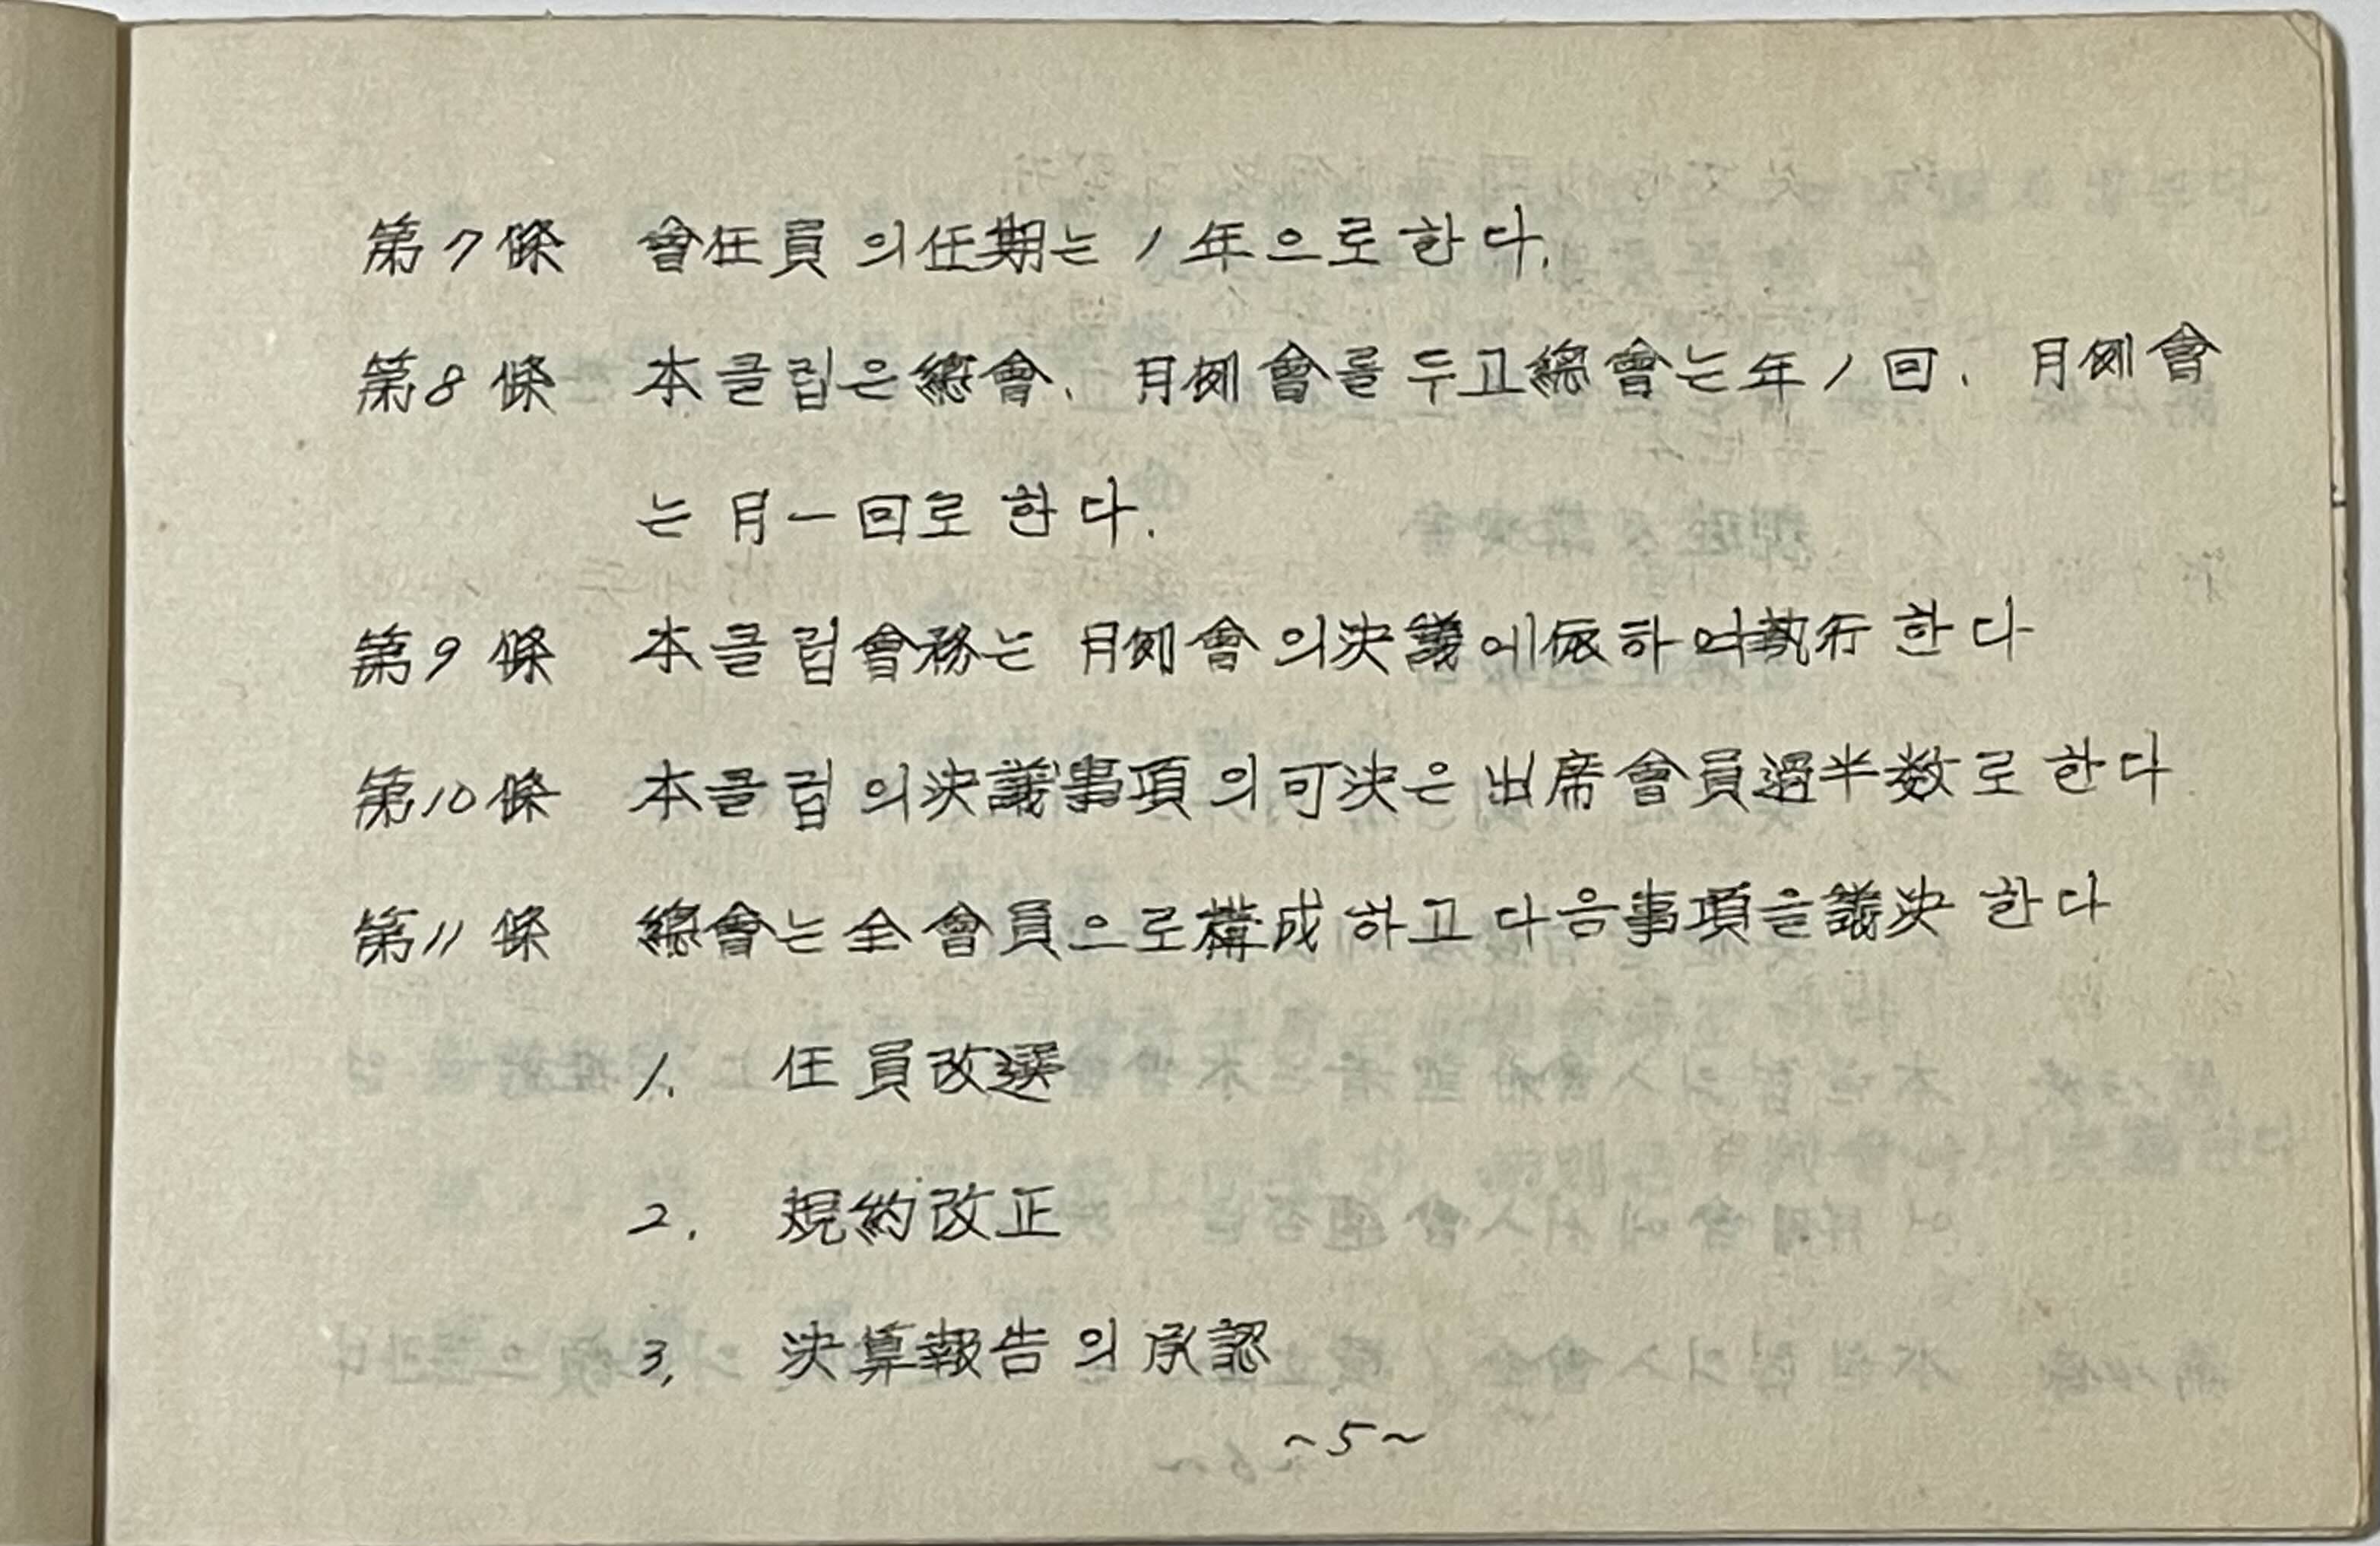 第7條 會任員의任期는 1年으로한다.
第8條 本클럽은總會、月例會를두고總會는年1回、月例會
는月一回로한다.
第9條 本클럽會務는 月例會의決議에依하여執行한다
第10條 本클럽의決議事項의可決은出席會員過半数로한다
第11條 總會는全會員으로構成하고다음事項을議決한다
1. 任員改選
2. 規約改正
3. 決算報告의承認
~5~